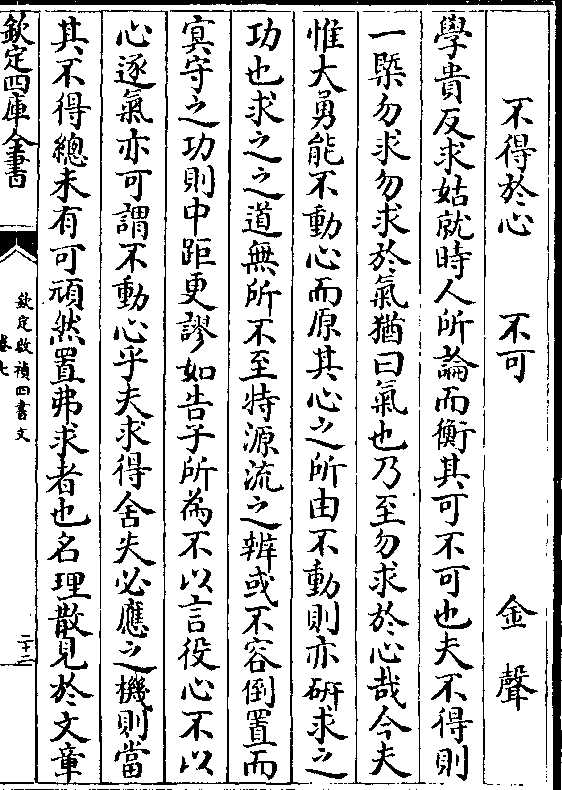 不得於心　不可　金聲
學貴反求姑就時人所論而衡其可不可也夫不得則
一槩勿求勿求於氣猶曰氣也乃至勿求於心哉今夫
惟大勇能不動心而原其心之所由不動則亦硏求之
功也求之之道無所不至特源流之辨或不容倒置而
冥守之功則中距更謬如告子所為不以言役心不以
心逐氣亦可謂不動心乎夫求得舍失必應之機則當
其不得總未有可頑然置弗求者也名理散見於文章
欽定四庫全書
欽定啟禎四書文
卷七
二十三